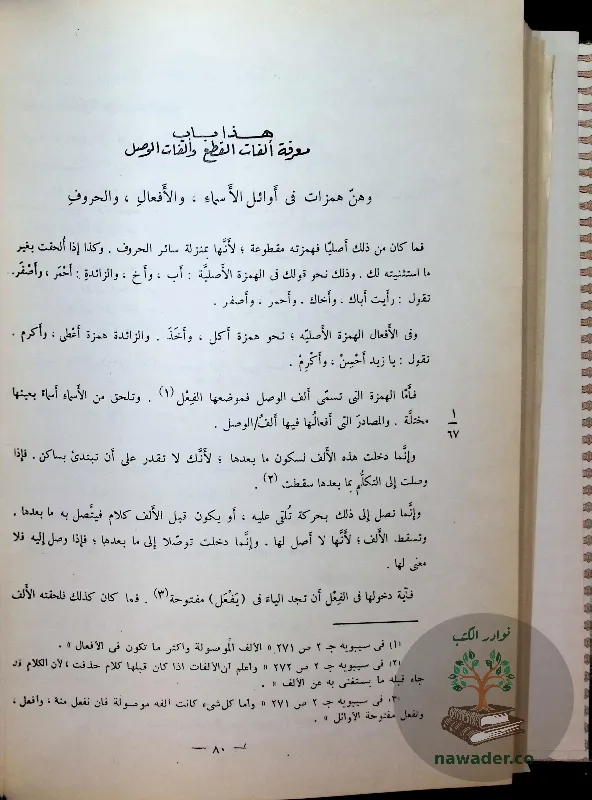 هـذا بـاب
معرفة ألفات القطع وألفات الوصل
وهنّ همزات فى أوائل الأَسماءِ ، والأَفعالِ ، والحروفِ
فما كان من ذلك أصليّا فهمزته مقطوعة ؛ لأَنَّها بمنزلة سائر الحروف . وكذا إذا أُلحقت بغير
ما استثنيته لك . وذلك نحو قولك فى الهمزة الأصليَّة : أب ، وأخ ، والزائدةِ : أَحْمَر ، وأَصْفَر.
تقول : رأيت أباك . وأخاك . وأحمر . وأصفر .
وفى الأَفعال الهمزة الأصليّه ؛ نحو همزة أكل ، وأَخَذَ . والزائدة همزة أَعْطى ، وأكرم .
تقول : يا زيد أَحْسِنْ ، وأَكْرِمْ .
فأَمَّا الهمزة التى تسمّى ألف الوصل فموضعها الفِعْل (١) . وتلحق من الأَسماءِ أسماءً بعينها
مختلَّة . والمصادرَ التى أفعالُها فيها ألفُ/الوصل .
١
٦٧
وإنَّما دخلت هذه الألف لسكون ما بعدها ؛ لأَنَّك لا تقدر على أن تبتدئ بساكن . فإذا
وصلت إلى التكلُّم بما بعدها سقطت (٢) .
وإنَّما تصل إلى ذلك بحركة تُلقى عليه ، أو يكون قبل الألف كلام فيتَّصل به ما بعدها ،
وتسقط الألف؛ لأَنَّها لا أصل لها . وإنَّما دخلت توصّلا إلى ما بعدها ؛ فإذا وصل إليه فلا
معنى لها .
فآية دخولها فى الفِعْل أن تجد الياءَ فى (يَفْعَل) مفتوحة (٣) . فما كان كذلك فلحقته الألف
(١) فى سيبويه جـ ٢ ص ٢٧١ « الألف الموصولة وأكثر ما تكون فى الأفعال » .
(٢) فى سيبويه جـ ٢ ص ٢٧٢ « واعلم أن الألفات اذا كان قبلها كلام حذفت ، لأن الكلام قد
جاء قبله ما يستغنى به عن الألف » .
(٣) فى سيبويه جـ ٢ ص ٢٧١ « وأما كل شىء كانت ألفه موصولة فان نفعل منه ، وأفعل ،
وتفعل مفتوحة الأوائل » .
— ٨٠ —
نوادر الكتب
nawader.co